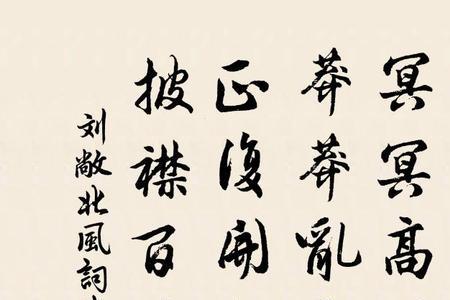 冥冥高
莽莽亂
正復開
披襟百
刘敞北風詞